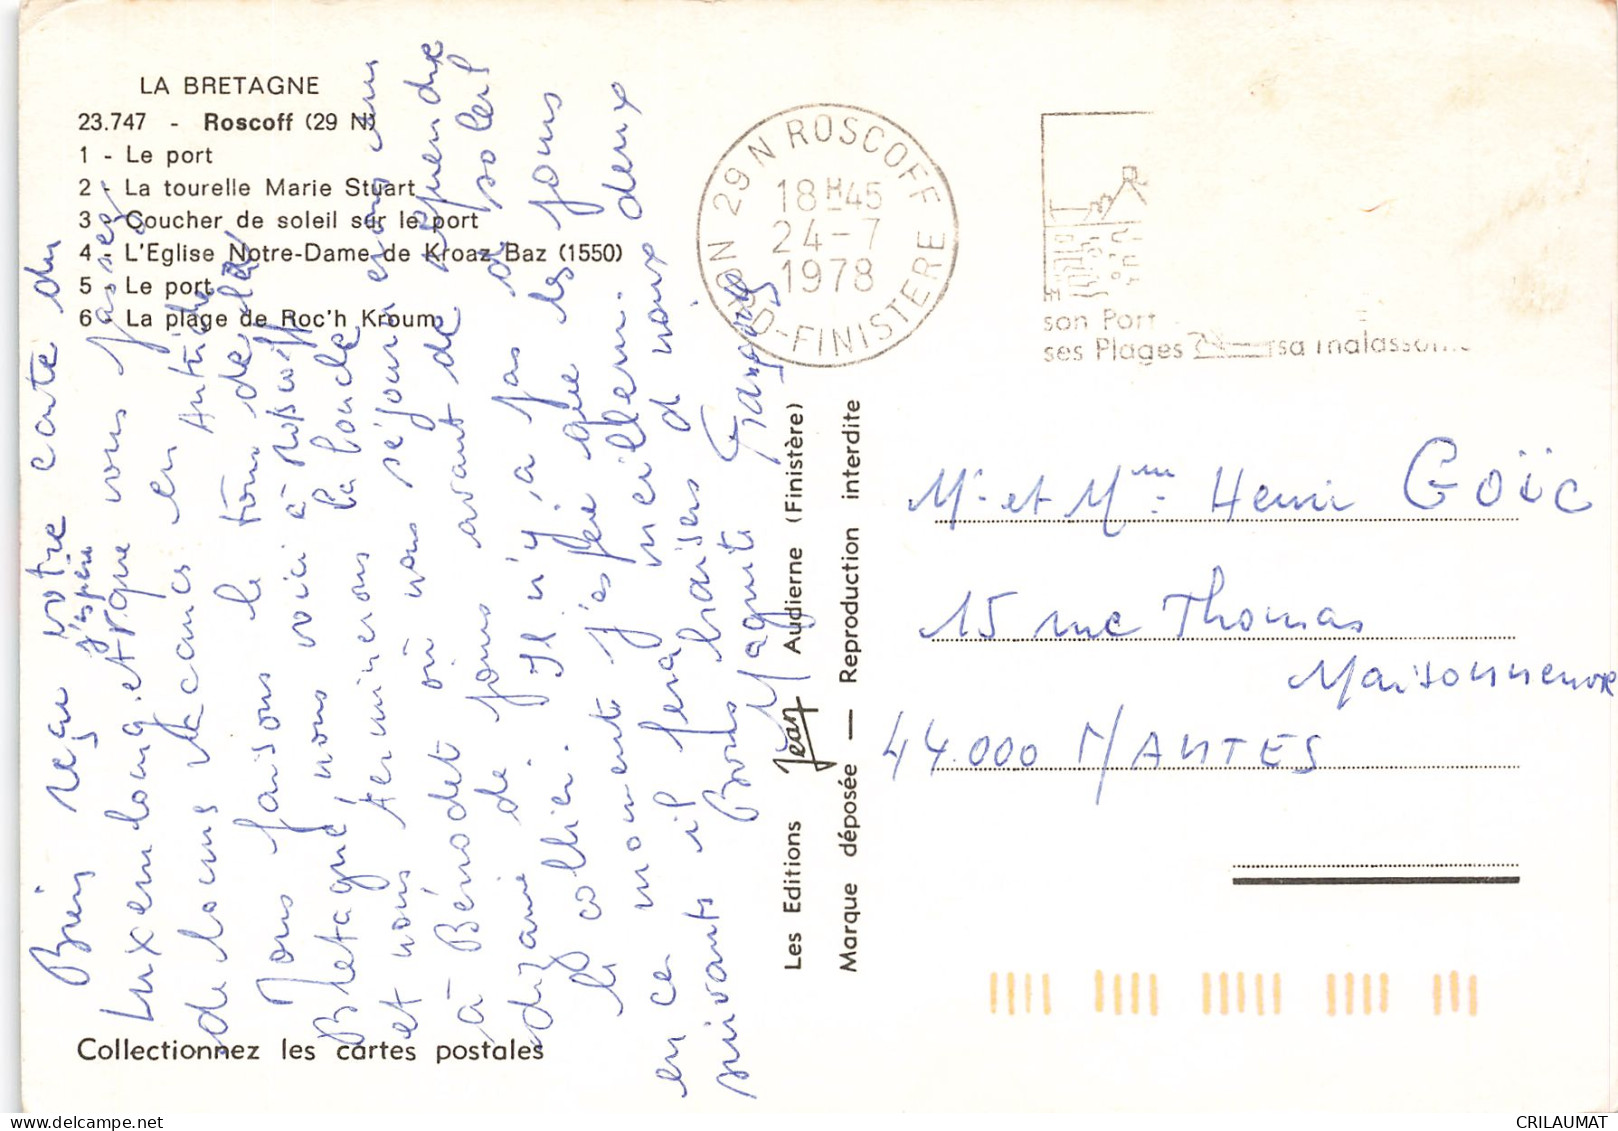 LA BRETAGNE
23.747 - Roscoff (29 N)
1 - Le port
2 - La tourelle Marie Stuart
3 - Coucher de soleil sur le port
4 - L'Eglise Notre-Dame de Kroaz Baz (1550)
5 - Le port
6 - La plage de Roc'h Kroum
Collectionnez les cartes postales
Bien reçu votre carte du
Luxembourg et j'espère que vous passez
de bonnes vacances en Autriche
Nous faisons le tour de la
Bretagne, nous voici à Roscoff
et nous terminerons la boucle
à Bénodet où nous séjournerons une
dizaine de jours avant de reprendre
le collier. Il n'y a pas de soleil
en ce moment j'espère que les jours
suivants il fera meilleur.
Bons baisers de nous deux
Marguerite François
Les Editions Jean Audierne (Finistère)
Marque déposée — Reproduction interdite
29 N ROSCOFF
18H45
24-7
1978
NORD-FINISTERE
son Port
ses Plages sa thalasso
Mr et Mme Henri GOÏC
15 rue Thomas
Maisonneuve
44.000 NANTES
CRILAUMAT